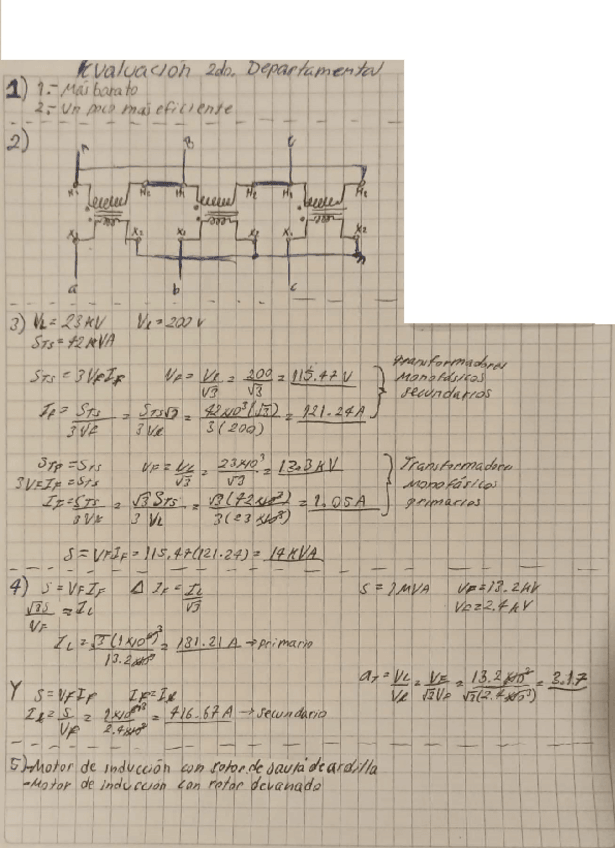 Evaluación 2do. Departamental
1) 1.- Más barato
2.- Un poco más eficiente
2)
A B C
X1 H2 H1 H2 H1 H2
X1 X2 X1 X2 X1 X2
n
a b c
3) VL = 23 kV Vl = 200 v
STS = 42 kVA
STS = 3VFIF VF = Vl/√3 = 200/√3 = 115.47 V
IF = STS/3VF = STS√3/3Vl = 42x10³(√3)/3(200) = 121.24 A
Transformadores
monofásicos
secundarios
STF = STS VF = VL/√3 = 23x10³/√3 = 13.3 kV
3VFIF = STS
IF = STS/3VF = √3 STS/3 VL = √3(42x10³)/3(23x10³) = 1.05 A
Transformadores
monofásicos
primarios
S = VFIF = 115.47(121.24) = 14 kVA
4) S = VFIF Δ IF = IL/√3 S = 1 MVA VF = 13.2 kV
√3S/VF = IL VF = 2.4 kV
IL = √3(1x10⁶)/13.2x10³ = 131.21 A → primario
aT = VL/Vl = VF/√3VF = 13.2x10³/√3(2.4x10³) = 3.17
Y S = VFIF IF = Il
Il = S/VF = 1x10⁶/2.4x10³ = 416.67 A → secundario
5) -Motor de inducción con rotor de jaula de ardilla
-Motor de inducción con rotor devanado